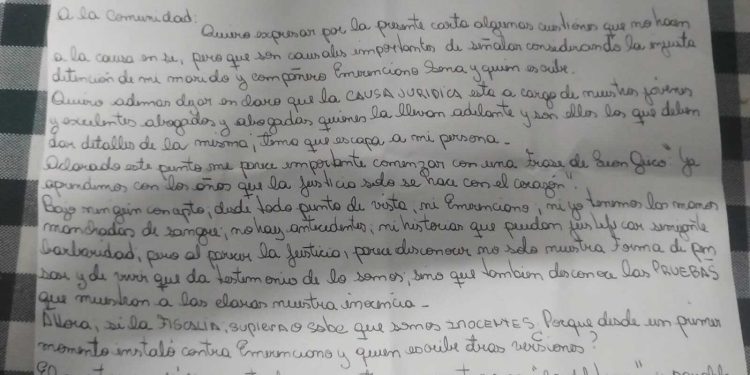 A la Comunidad:
Quiero expresar por la presente carta algunas cuestiones que no hacen
a la causa en si, pero que son causales importantes de señalar considerando la injusta
detención de mi marido y compañero Emerenciano Sena y quien escribe.
Quiero ademas dejar en claro que la CAUSA JURIDICA esta a cargo de nuestros jóvenes
y excelentes abogados y abogadas quienes la llevan adelante y son ellos los que deben
dar detalles de la misma, tema que escapa a mi persona.
Aclarado este punto me parece importante comenzar con una frase de "Ya
aprendimos con los años que la justicia solo se hace con el corazón".
Bajo ningun concepto, desde todo punto de vista, ni Emerenciano, ni yo tenemos las manos
manchadas de sangre, no hay antecedentes, ni historias que puedan justificar semejante
barbaridad, pero al parecer la Justicia, parece desconocer no solo nuestra forma de pen
sar y de vivir que da testimonio de lo somos, sino que tambien desconoce las PRUEBAS
que muestran a las claras nuestra inocencia -
Ahora, si la FISCALIA, SUPIERA O sabe que somos INOCENTES, Porque desde un primer
momento instaló contra Emerenciano y quien escribe otras versiones?